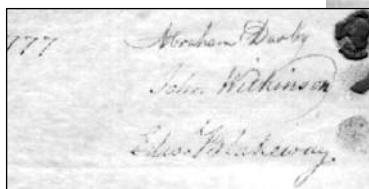 777 Abraham Darby
John Wilkinson
Edwd Blakeway